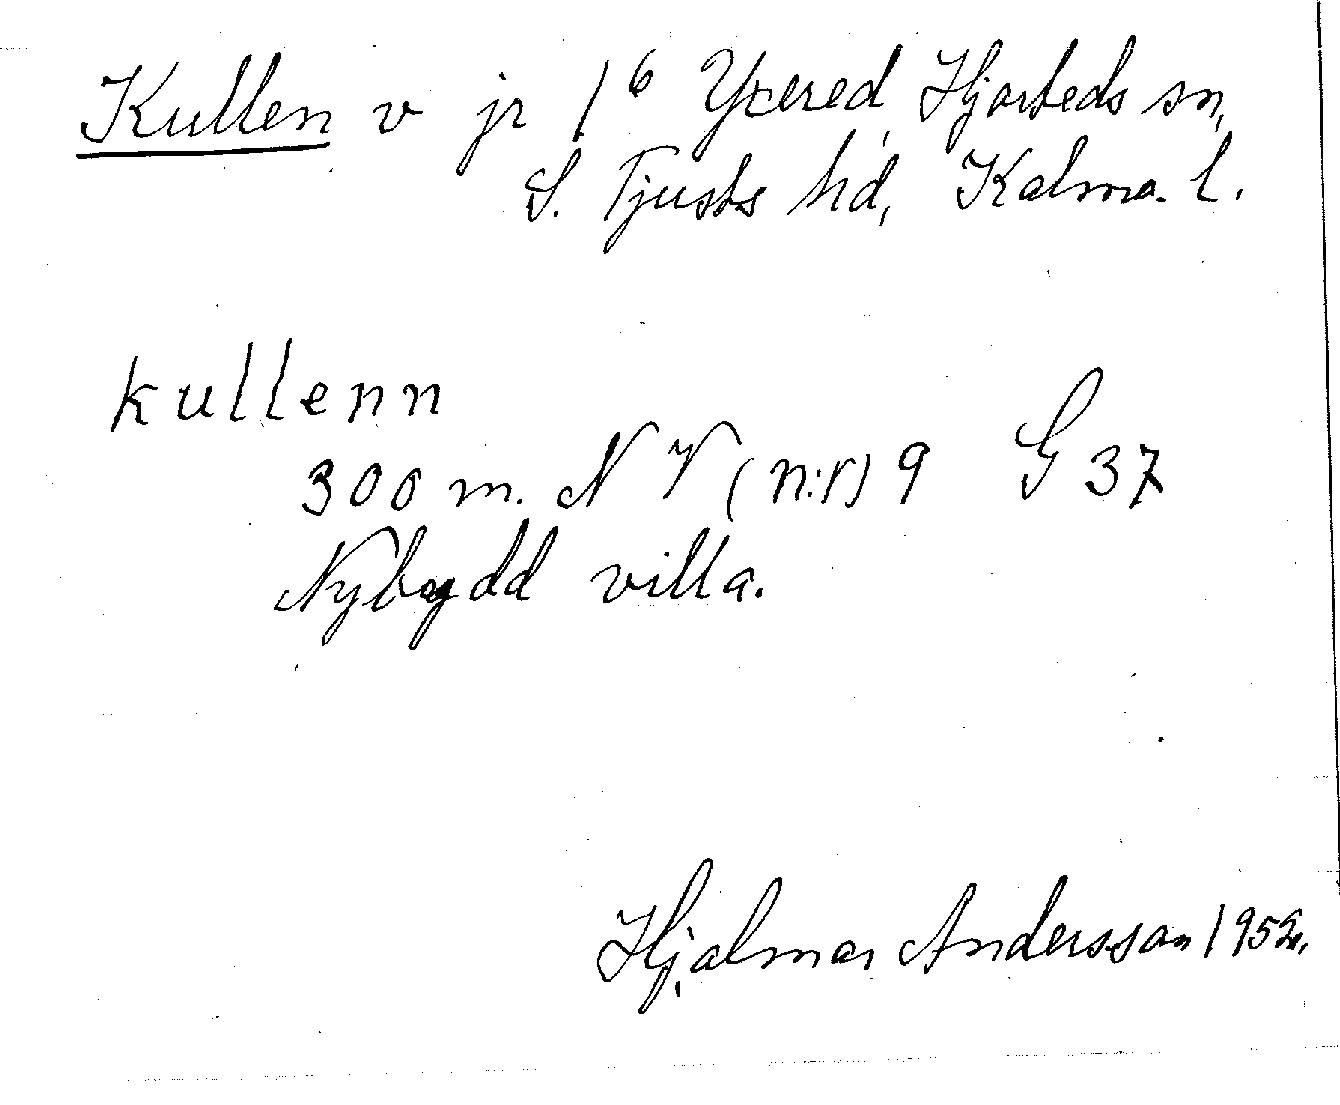 Kullen v jr 1⁶ Yxered, Hjorteds sn,
S. Tjusts hd, Kalma. l.
kullenn
300 m. N V (n:r) 9 G 37
Nybygdd villa.
Hjalmar Andersson 1952.